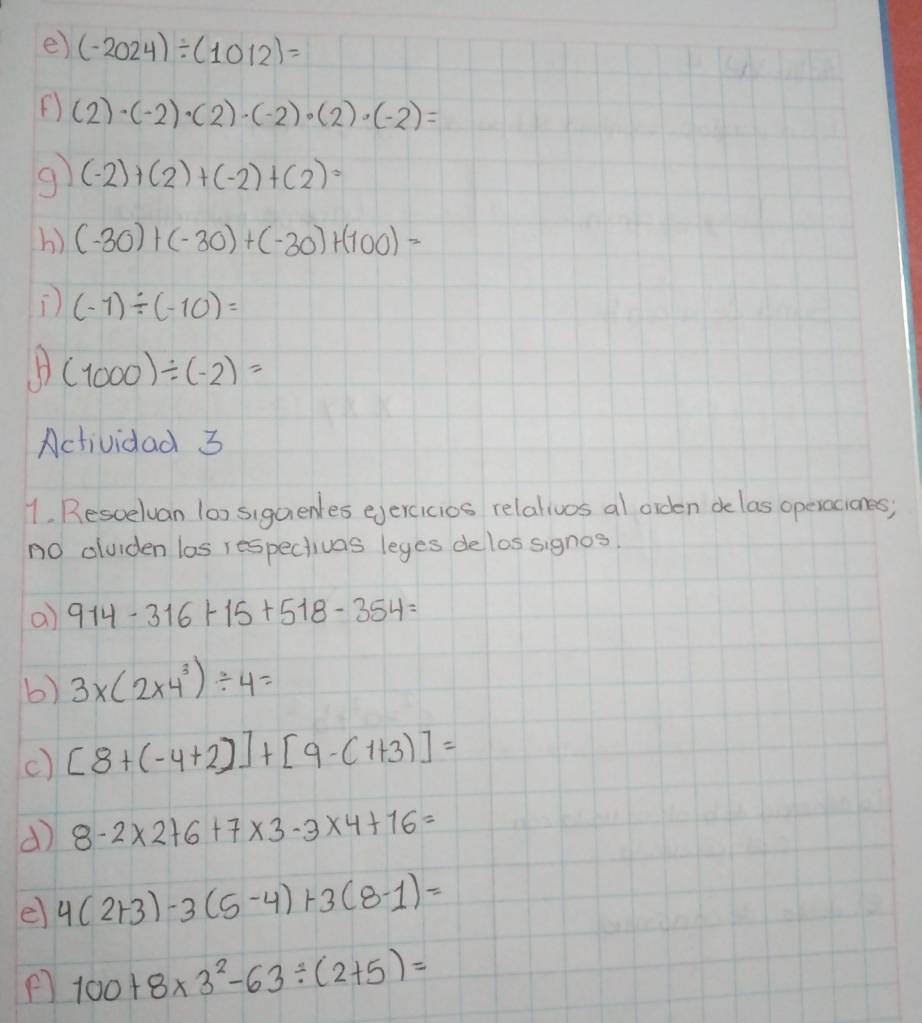 e) (-2024)÷(1012)=
f) (2)·(-2)·(2)·(-2)·(2)·(-2)=
g) (-2)+(2)+(-2)+(2)=
h) (-30)+(-30)+(-30)+(100)=
i) (-1)÷(-10)=
j) (1000)÷(-2)=
Actividad 3
1. Resuelvan los siguientes ejercicios relativos al orden de las operaciones;
no olviden las respectivas leyes de los signos.
a) 914-316+15+518-354=
b) 3x(2x4³)÷4=
c) [8+(-4+2)]+[9-(1+3)]=
d) 8-2x2+6+7x3-3x4+16=
e) 4(2+3)-3(5-4)+3(8-1)=
f) 100+8x3²-63÷(2+5)=